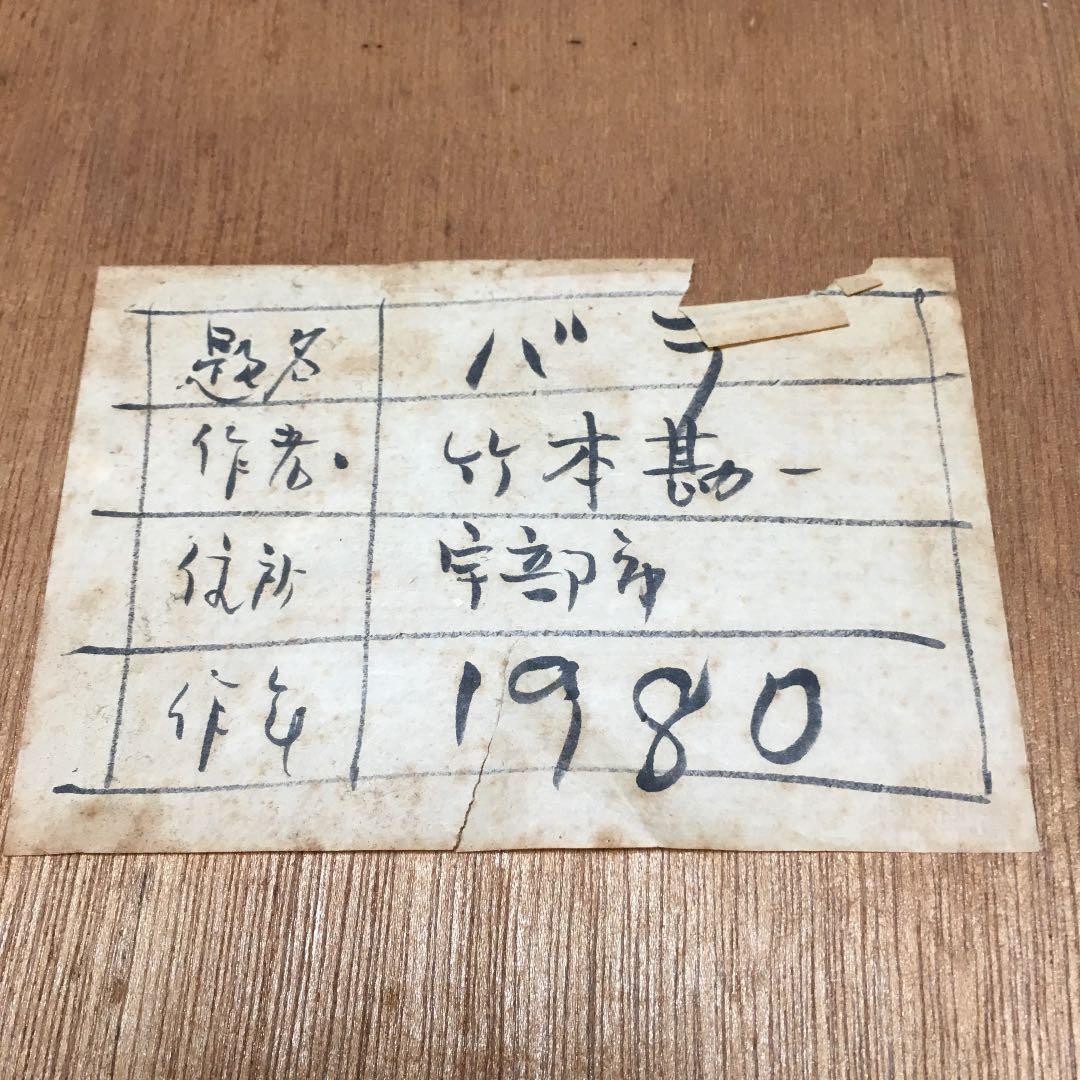 題名 バラ
作者. 竹本勘一
住所 宇部市
作年 1980